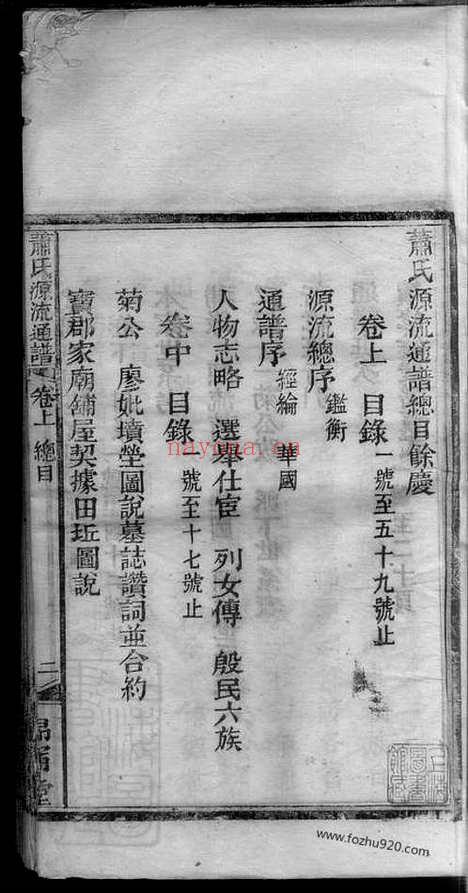 蕭氏源流通譜總目餘慶
卷上 目錄 一號至五十九號止
源流總序 鑑衡
通譜序 經綸 華國
人物志略 選舉仕宦 列女傳 殷民六族
卷中 目錄 號至十七號止
菊公 廖妣墳塋圖說墓誌讚詞並合約
寶郡家廟鋪屋契據田坵圖說
蕭氏源流通譜 卷上 總目 二
nayona.cn
www.fozhu920.com